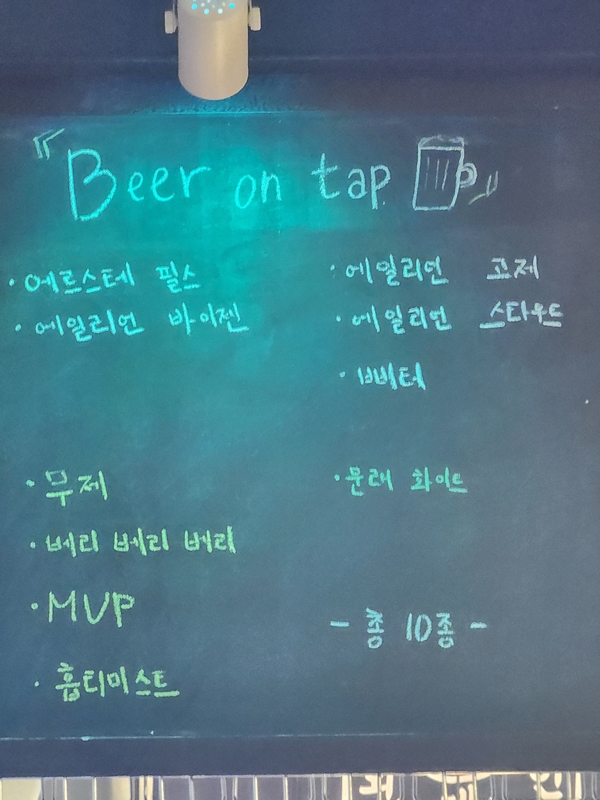 Beer on tap
· 에르스테 필스
· 에일리언 바이젠
· 에일리언 고제
· 에일리언 스타우트
· 빡터
· 무제
· 베리 베리 베리
· MVP
· 홉티미스트
· 문래 화이트
- 총 10종 -